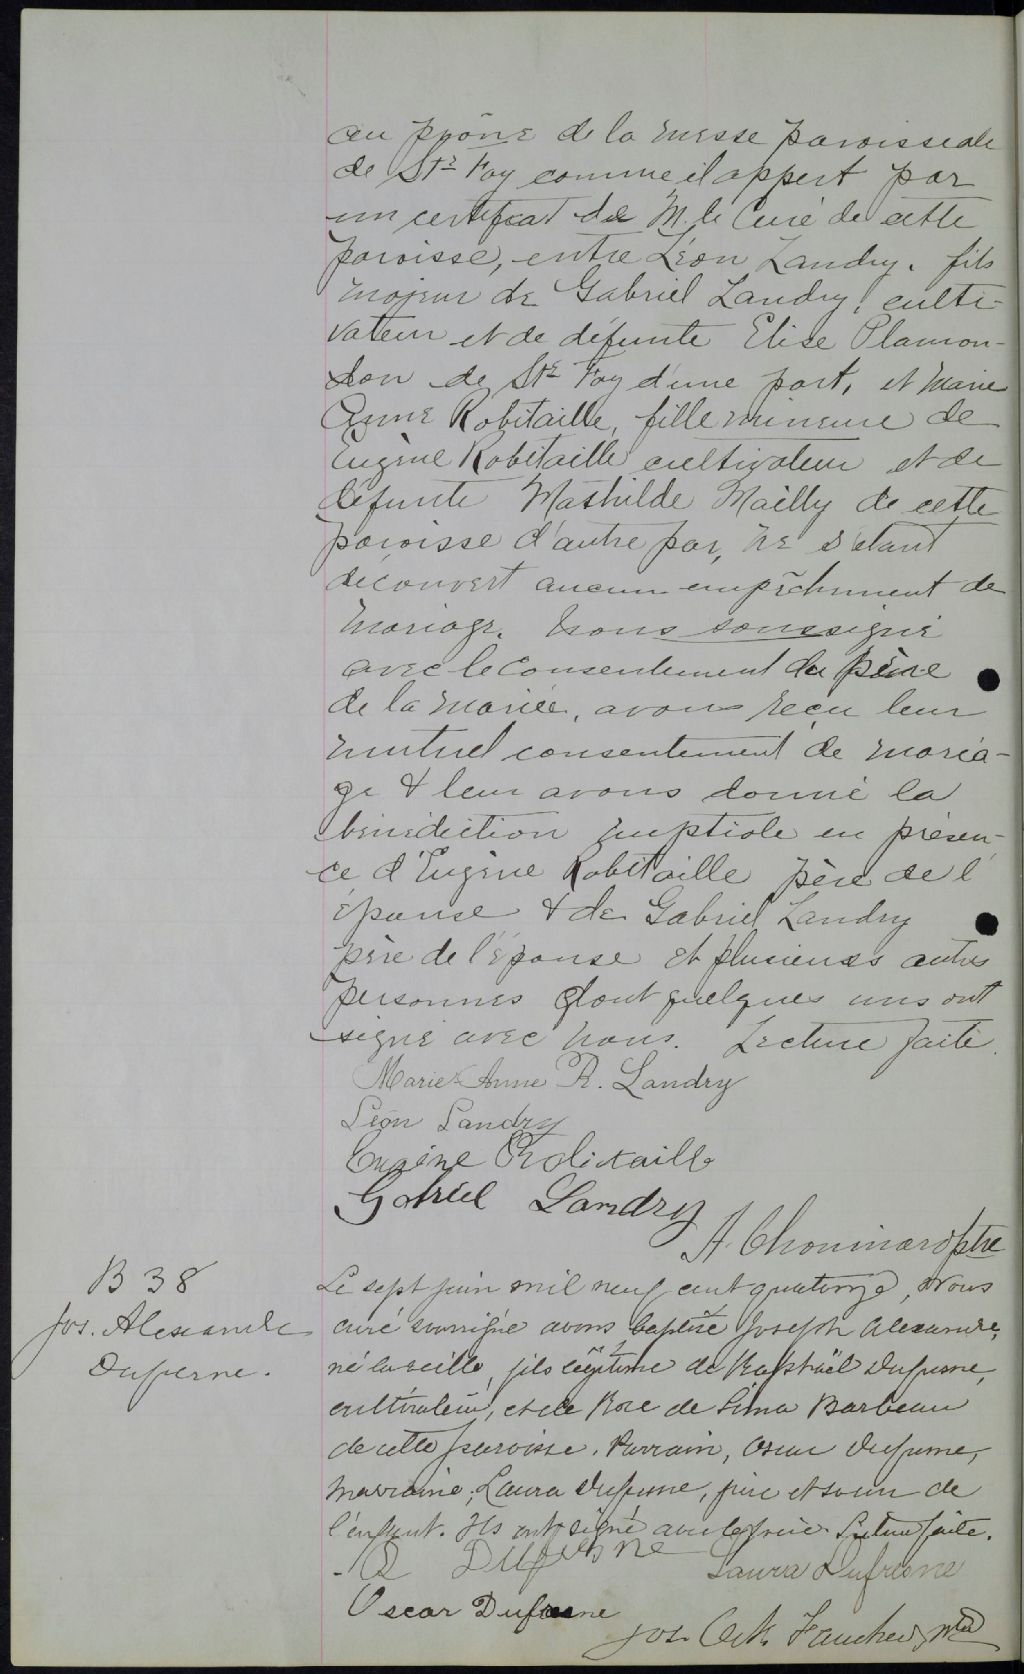 au prône de la messe paroissiale
de Ste Foy comme il appert par
un certificat de M. le Curé de cette
paroisse, entre Léon Landry, fils
majeur de Gabriel Landry, culti-
vateur et de défunte Elise Plamon-
don de Ste Foy d'une part, et Marie
Anne Robitaille, fille mineure de
Eugène Robitaille cultivateur et de
défunte Mathilde Mailly de cette
paroisse d'autre par, ne s'étant
découvert aucun empêchment de
mariage. Nous soussigné
avec le consentement du père
de la mariée, avons reçu leur
mutuel consentement de maria-
ge & leur avons donné la
bénédiction nuptiale en présen-
ce d'Eugène Robitaille père de l'
épouse & de Gabriel Landry
père de l'épouse et plusieurs autres
personnes dont quelques uns ont
signé avec nous. Lecture faite.
Marie Anne R. Landry
Léon Landry
Eugène Robitaille
Gabriel Landry
A. Chouinard ptre
B 38
Jos. Alexandre
Dufresne.
Le sept juin mil neuf cent quatorze, Nous
curé soussigné avons baptisé Joseph Alexandre,
né la veille, fils légitime de Raphaël Dufresne,
cultivateur, et de Rose de Lima Barbeau
de cette paroisse. Parrain, Oscar Dufresne,
marraine, Laura Dufresne, frère et soeur de
l'enfant. Ils ont signé avec le père. Lecture faite.
R Dufresne Laura Dufresne
Oscar Dufresne
Jos. Faucher